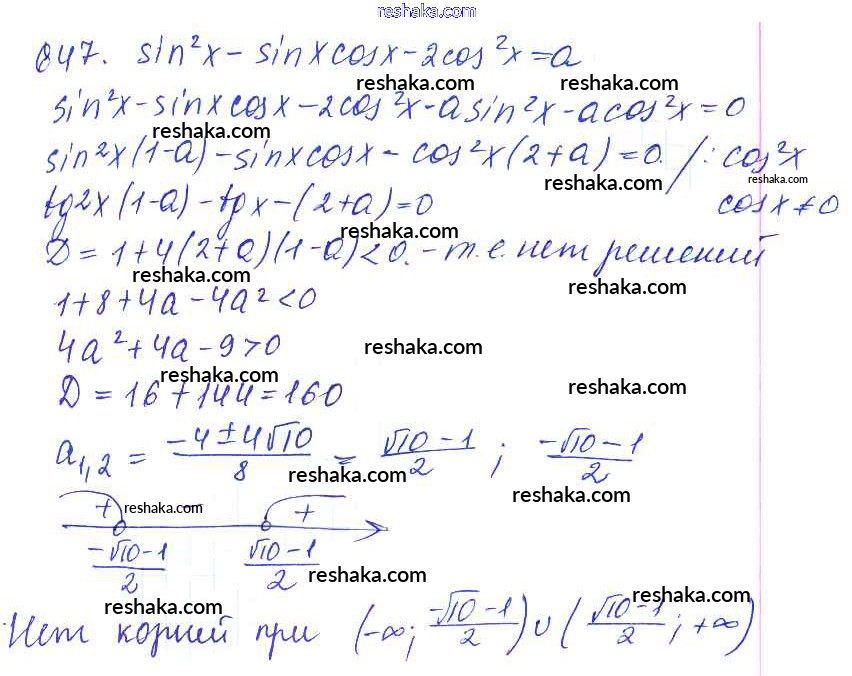 reshaka.com
847. sin²x - sinxcosx - 2cos²x = a
reshaka.com
sin²x - sinxcosx - 2cos²x - asin²x - acos²x = 0
reshaka.com
sin²x(1-a) - sinxcosx - cos²x(2+a) = 0. /: cos²x
reshaka.com reshaka.com
tg2x(1-a) - tgx - (2+a) = 0 cosx ≠ 0
reshaka.com
D = 1+4(2+a)(1-a) < 0. - т.е. нет решений
reshaka.com reshaka.com
1+8+4a-4a² < 0
4a²+4a-9 > 0 reshaka.com
reshaka.com
D = 16+144 = 160 reshaka.com
a₁,₂ = (-4±4√10)/8 = (√10-1)/2 ; (-√10-1)/2
reshaka.com reshaka.com
+ reshaka.com +
(-√10-1)/2 (√10-1)/2
reshaka.com
reshaka.com reshaka.com
Нет корней при (-∞; (-√10-1)/2) ∪ ((√10-1)/2; +∞)
reshaka.com reshaka.com